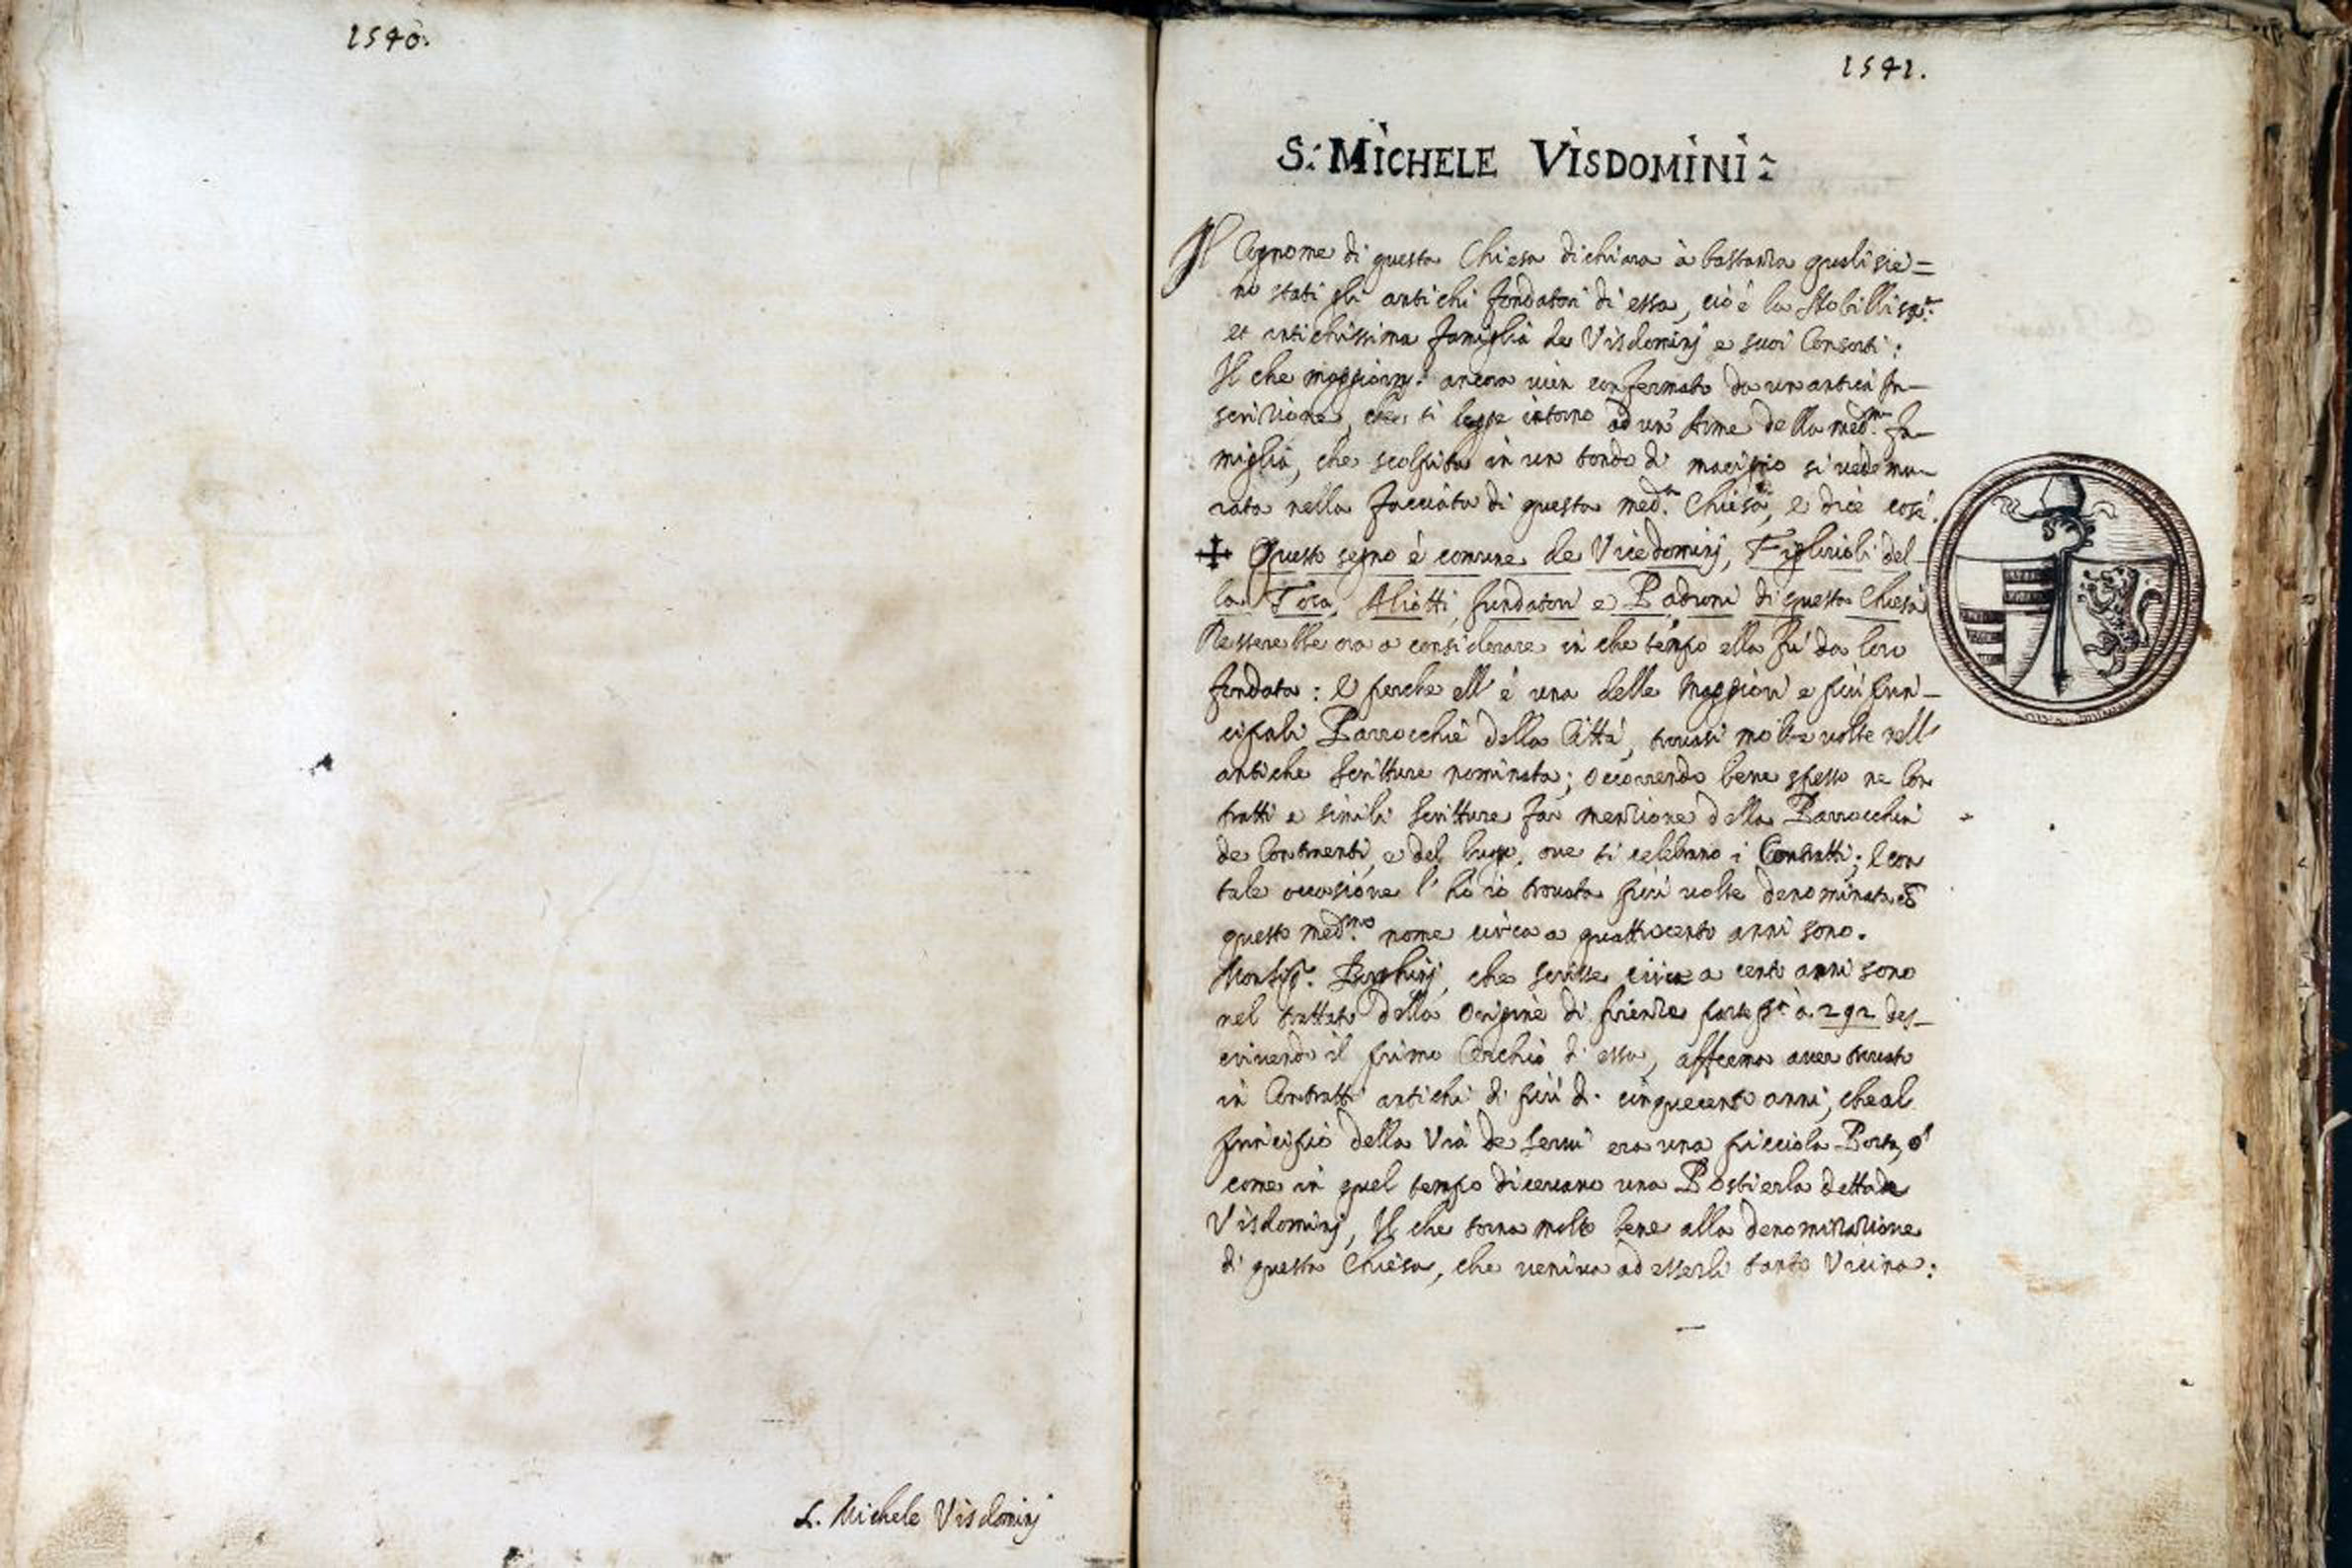 1540.
S. Michele Visdominj
1541.
S: MICHELE VISDOMINI:
Il Cognome di questa Chiesa dichiara à bastanza quali sie=
no stati gli antichi fondatori di essa, cioè la Nobilliss.ª
et antichissima famiglia de Visdominj e suoi Consorti:
Il che maggiorm. ancora vien confermato da un antica In-
scrizione, che si legge intorno ad un' Arme della med.ma Fa-
miglia, che scolpita in un tondo di macigno si vede mu-
rata nella facciata di questa med.ª Chiesa, e dice così.
✠ Questo segno è comune de Vicedominj, Figliuoli del-
la Tosa, Aliotti, fundatori e Padroni di questa Chiesa
Resterebbe ora a considerare in che tempo ella fù da loro
fondata: E perche ell' è una delle Maggiori e più prin-
cipali Parrocchie della Città, trovasi molte volte nell'
antiche scritture nominata; occorrendo bene spesso ne Con
tratti e simili scritture far menzione della Parrocchia
de Contraenti, e del luogo, ove si celebrano i Contratti; E con
tale occasione l' hò io trovata più volte denominata
questo med.mo nome circa a quattrocento anni sono.
Monsig.r Borghinj, che scrisse circa a cento anni sono
nel trattato della Origine di firenze parte p.ª à 292 des-
crivendo il primo Cerchio di essa, afferma aver trovato
in Contratti antichi di più di cinquecento anni, che al
principio della Via de Servi era una picciola Porta, ò
come in quel tempo dicevano una Postierla detta de
Visdominj, Il che torna molto bene alla denominazione
di questa Chiesa, che veniva ad esserli tanto Vicina: